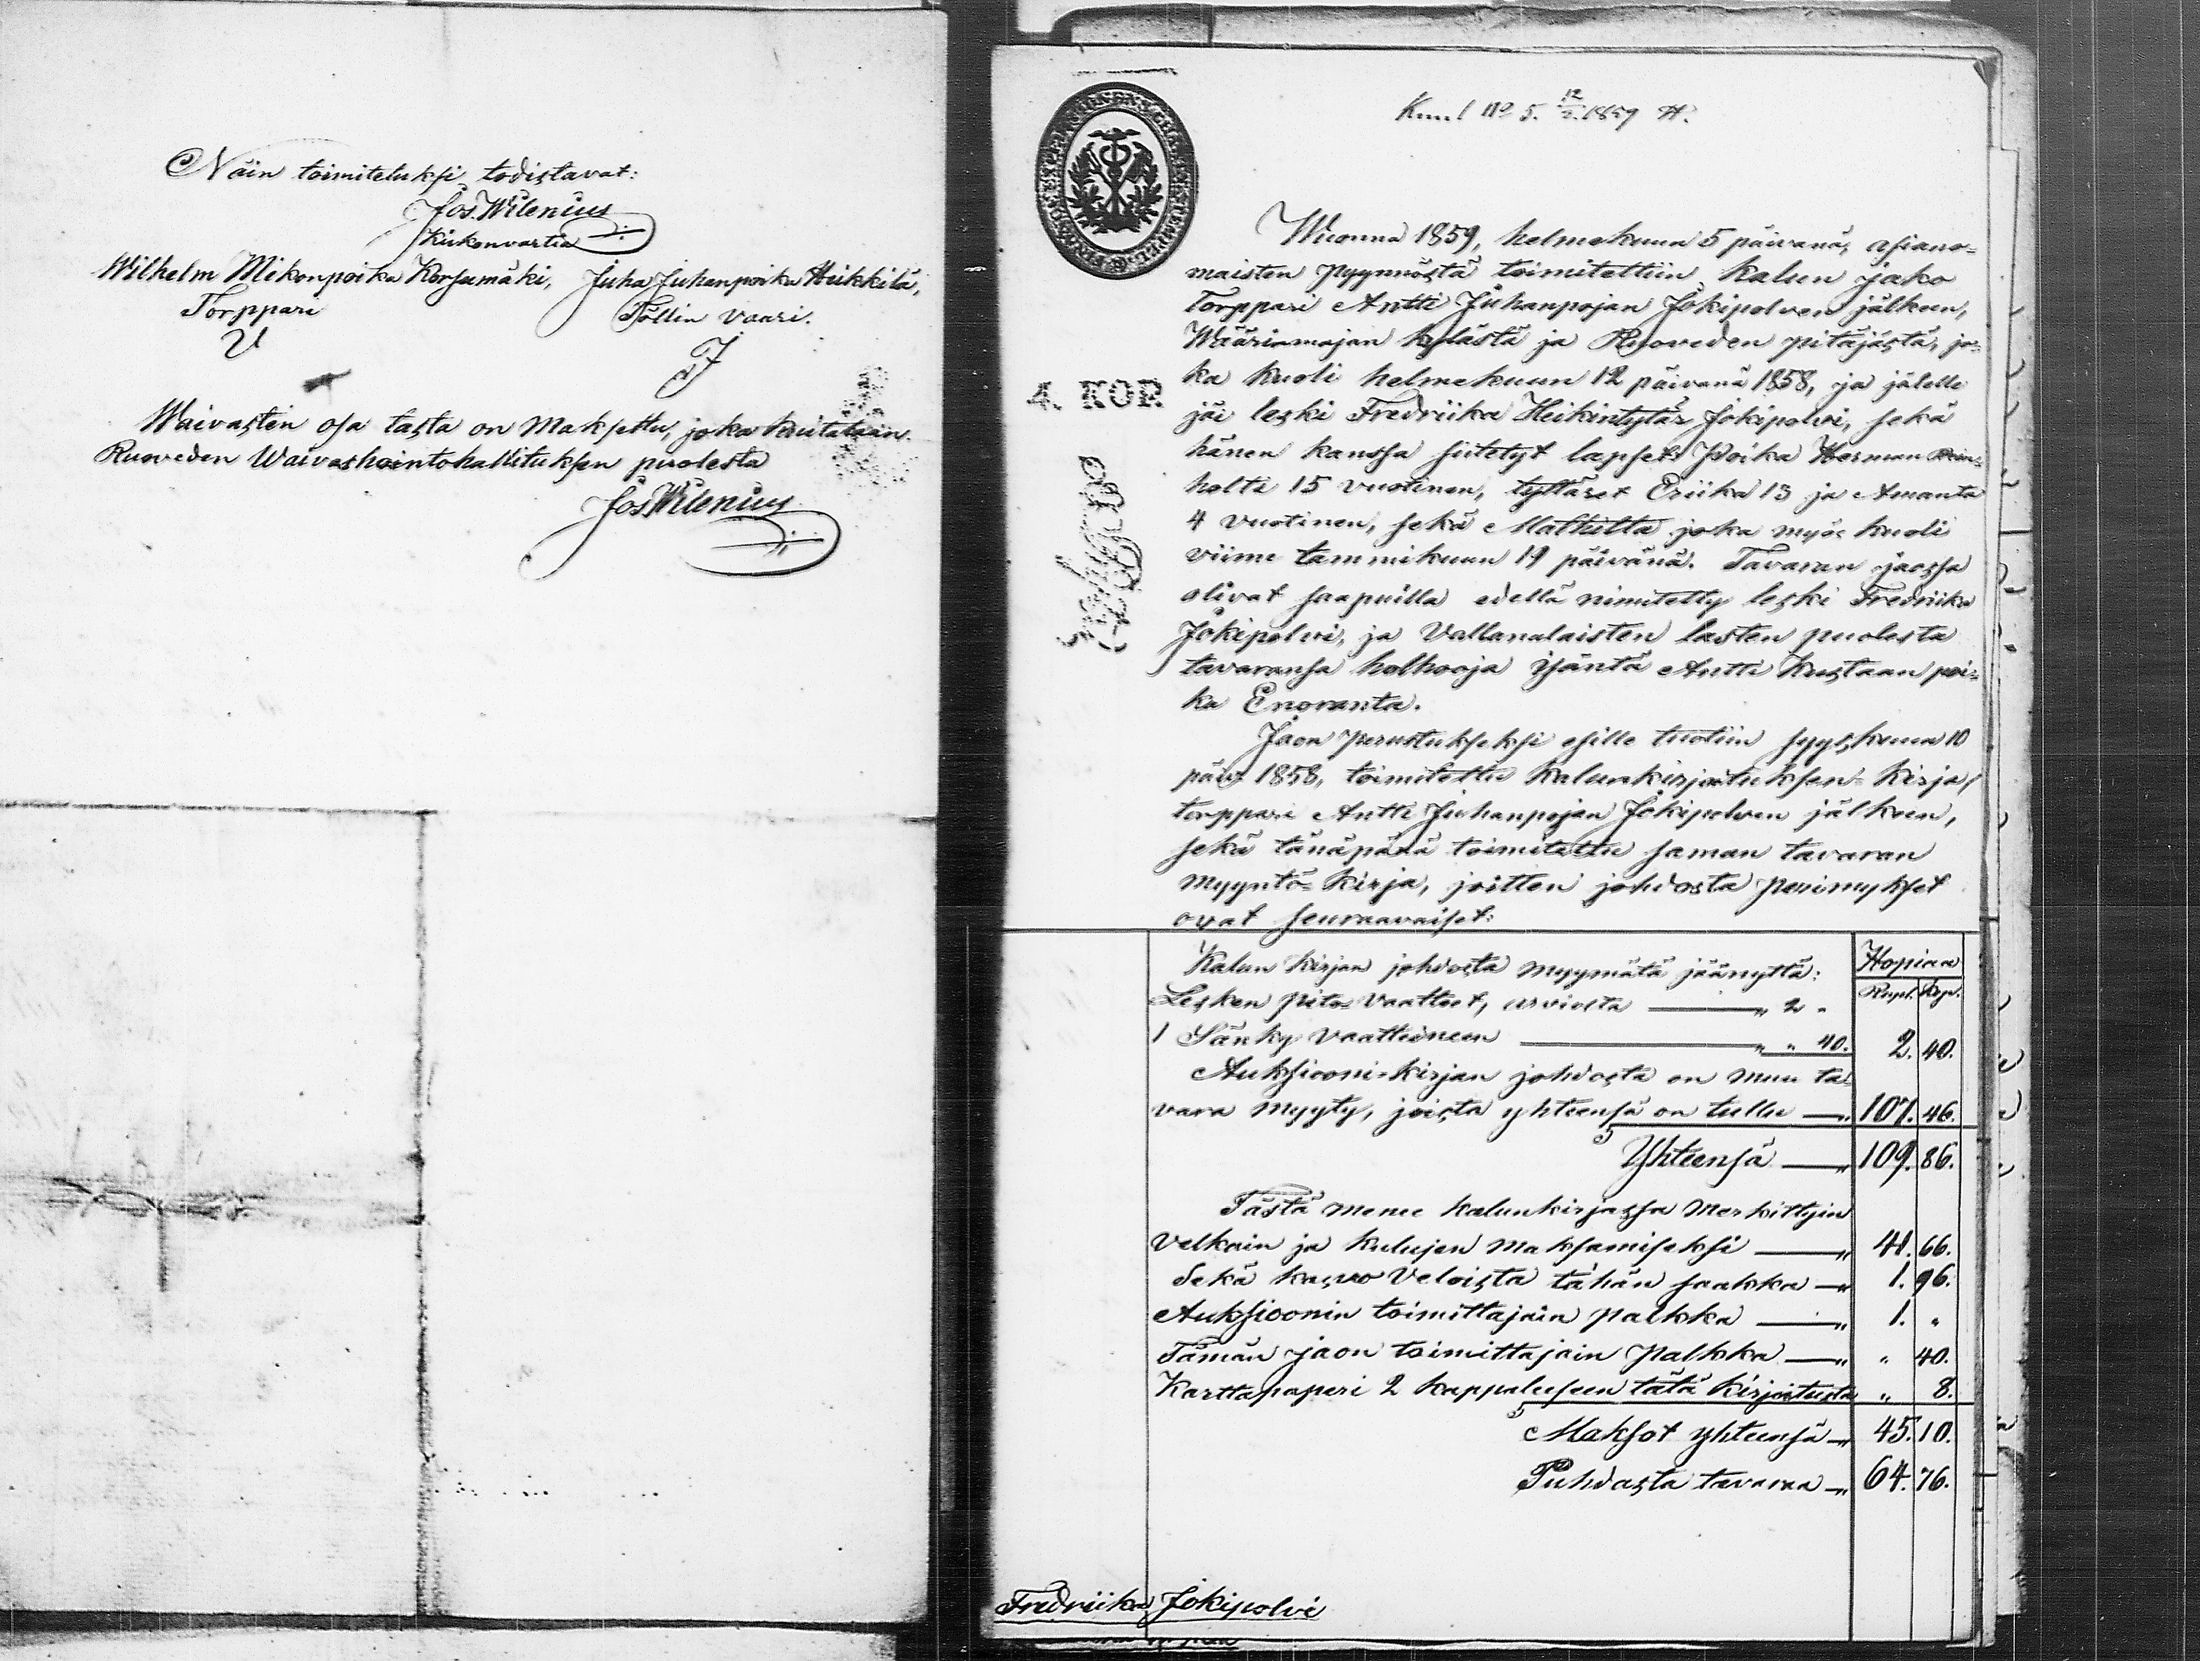 Näin toimiteluksi todistavat:
Jos. Wilenius
Kirkonvartia
Wilhelm Mikonpoika Korsamäki, Juha Juhanpoika Heikkilä,
Torppari Töllin Vaari.
Waivastin osa tästä on Maksettu, joka kuitataan
Ruoveden Waivashointohallituksen puolesta
Jos Wilenius
No 5. 12/2. 1859
Wuonna 1859, helmekuun 5 päivänä, asiano-
maisten pyynnöstä toimitettiin kalun jako
Torppari Antti Juhanpojan Jokipolven jälkeen,
Wäärinmajan kylästä ja Ruoveden pitäjästä, jo-
ka kuoli helmekuun 12 päivänä 1858, ja jälelle
4. KOP.
jäi leski Fredriika Heikintytär Jokipolvi, sekä
hänen kanssa siitetyt lapset: Poika Herman Rein-
holti 15 vuotinen, tyttäret Eriika 13 ja Amanta
4 vuotinen, sekä Mathilta joka myös kuoli
viime tammikuun 19 päivänä. Tavaran jaossa
olivat saapuilla edellä nimitetty leski Fredriika
Jokipolvi, ja Vallanalaisten lasten puolesta
tavaransa holhooja isäntä Antti Kustaan poi-
ka Enoranta.
Jaon perustukseksi esille tuotiin syyskuun 10
päiv. 1858, toimitettu kalunkirjoituksen-kirja,
torppari Antti Juhanpojan Jokipolven jälkeen,
sekä tänäpänä toimitettu saman tavaran
myyntö-kirja, joitten johdosta perimykset
ovat seuraavaiset:
Kalun kirjan johdosta myymätä jäänyttä: Hopiaa
Lesken pito-vaatteet, arviolta " 2 " Rupl. Kop.
1 Sänky vaatteineen " " 40. 2. 40.
Auksiooni-kirjan johdosta on muu ta-
vara myyty, joista yhteensä on tullu 107. 46.
Yhteensä " 109. 86.
Tästä menee kalunkirjassa merkittyin
Velkain ja kulujen maksamiseksi " 41. 66.
Sekä kasvo Veloista tähän saakka " 1. 96.
Auksioonin toimittajain palkka " 1. "
Tämän jaon toimittajain palkka " " 40.
Karttapaperi 2 kappaleeseen tätä kirjoitusta " 8.
Maksot yhteensä " 45. 10.
Puhdasta tavaraa " 64. 76.
Fredriika Jokipolvi